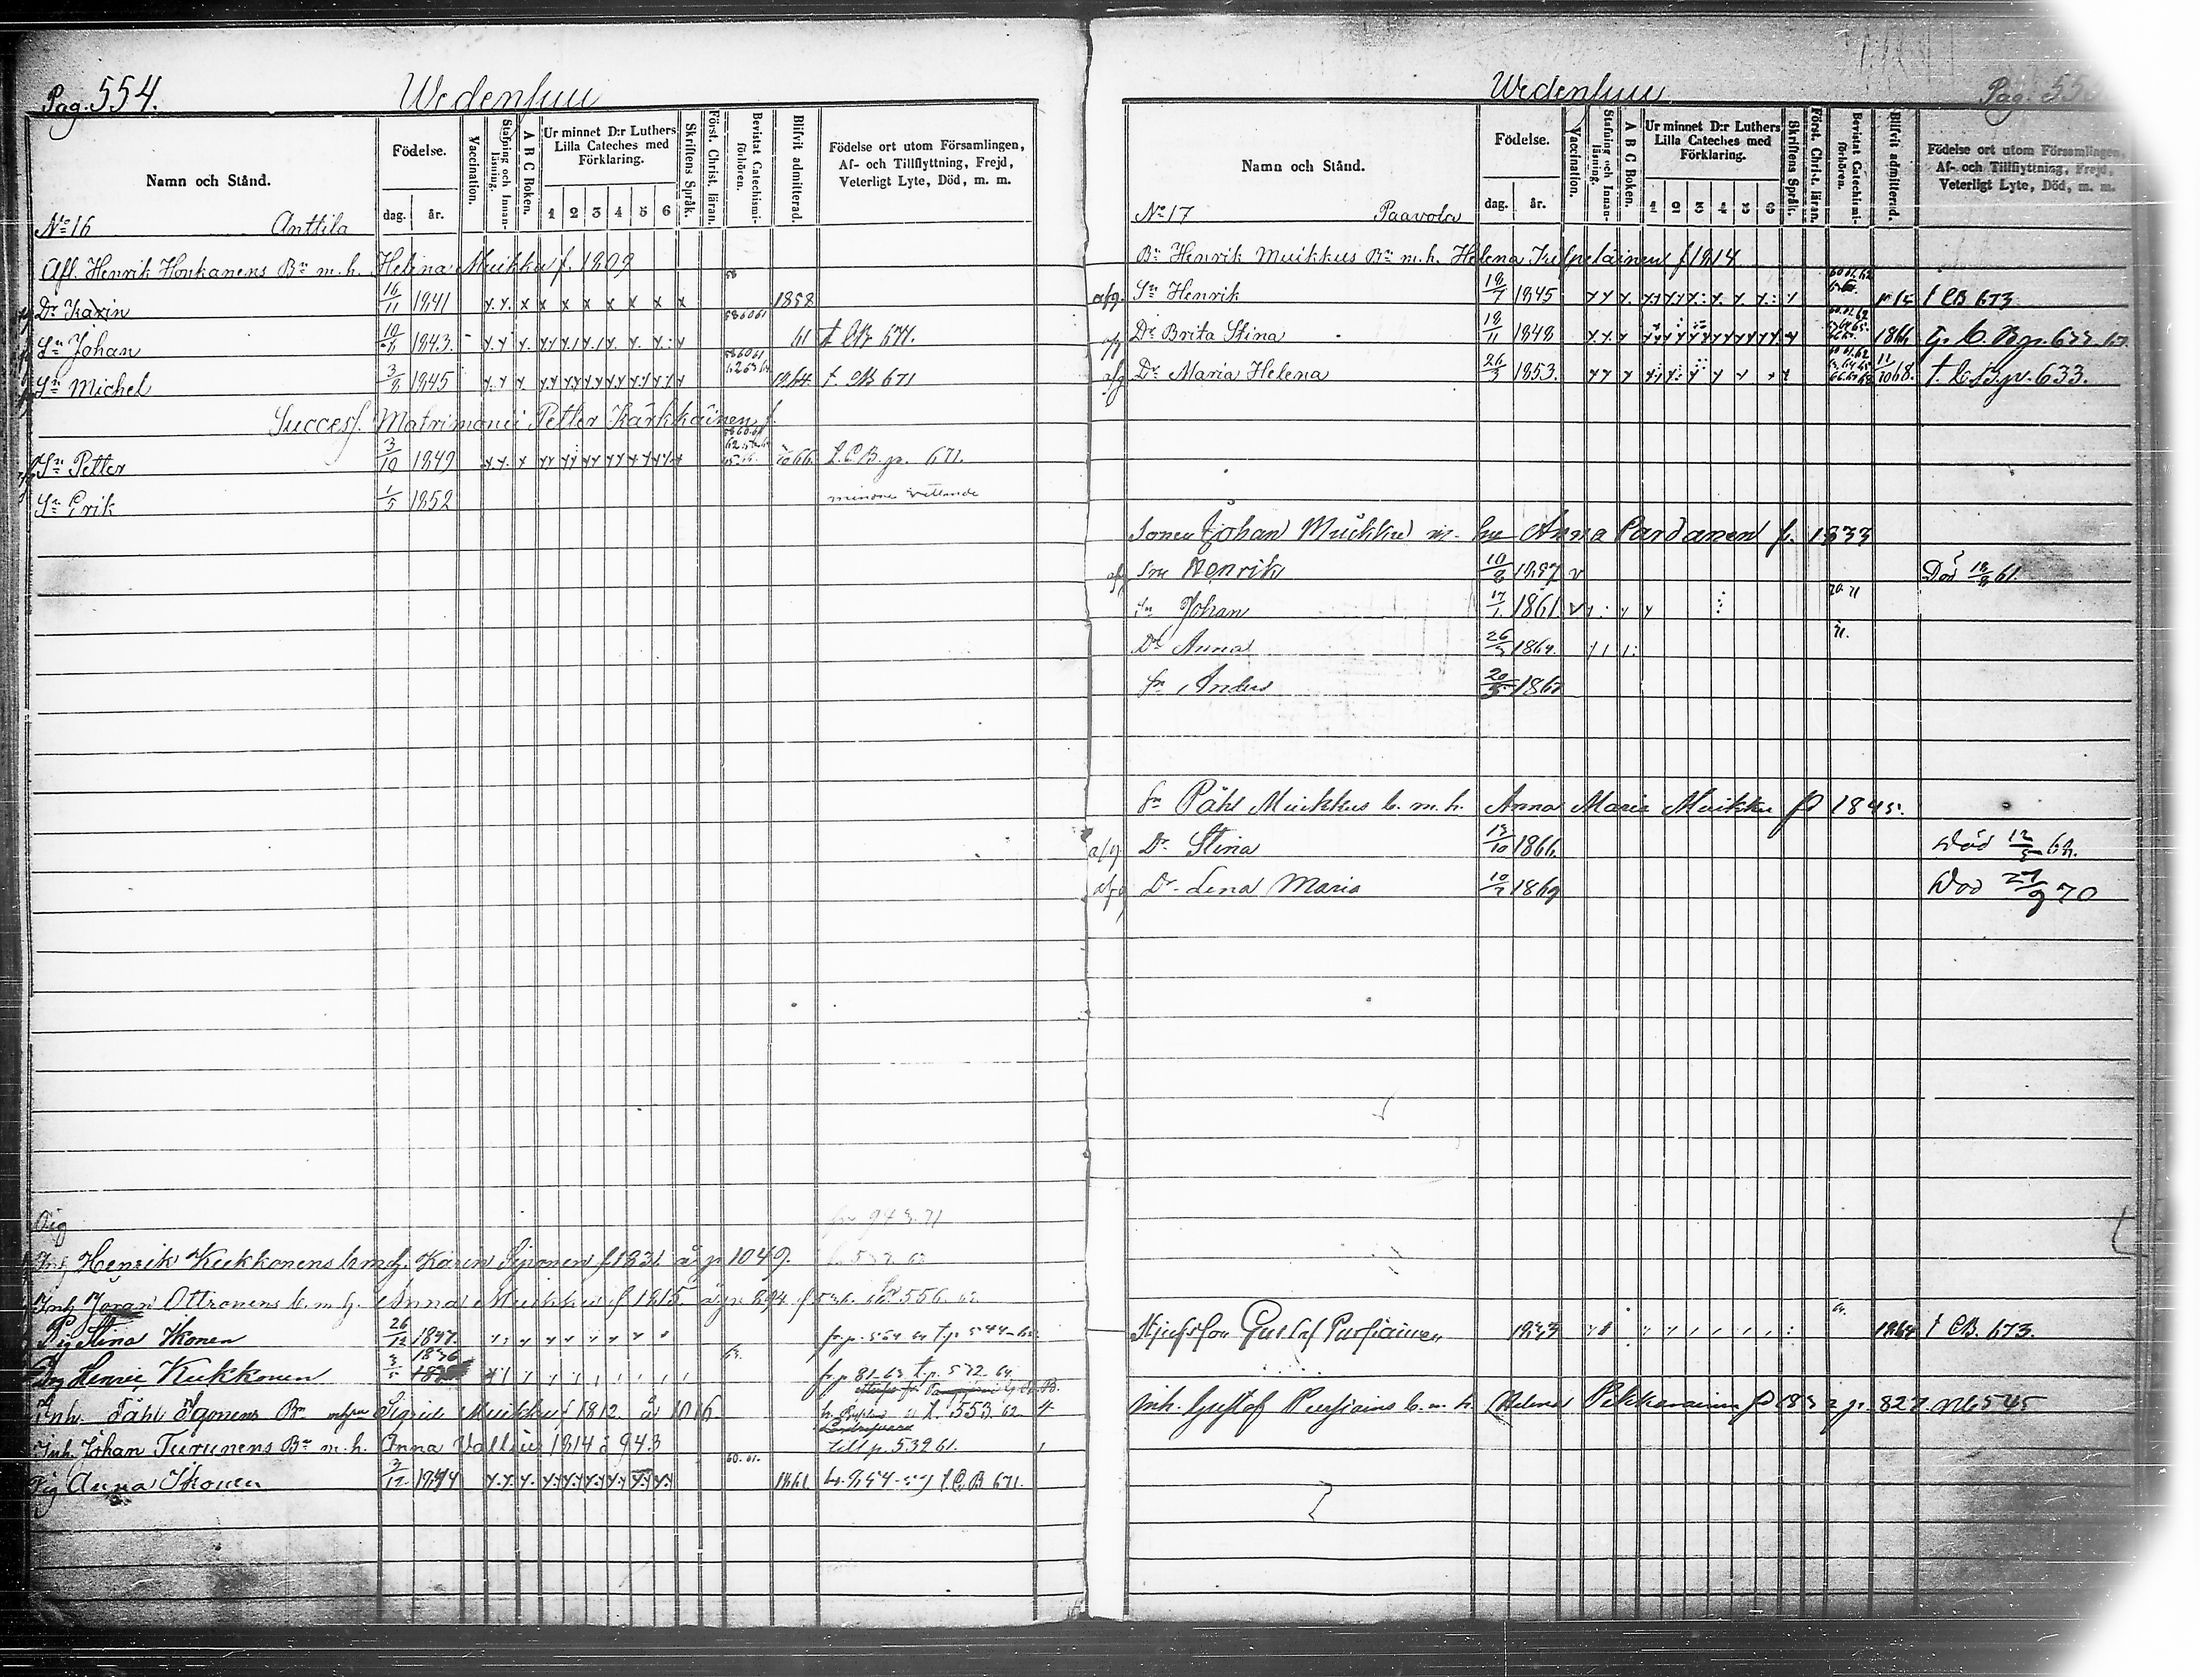 Pag. 554.
Wedensuu
Namn och Stånd.
Födelse.
dag. år.
Vaccination.
Stafning och Innanläsning.
A B C Boken.
Ur minnet D:r Luthers Lilla Cateches med Förklaring.
1 2 3 4 5 6
Skriftens Språk.
Först. Christ. läran.
Bevistat Catechismiförhören.
Blifvit admitterad.
Födelse ort utom Församlingen, Af- och Tillflyttning, Frejd, Veterligt Lyte, Död, m. m.
No 16 Anttila
Afl. Henrik Honkanens Bn m. h. Helena Muikku f. 1809
Dr Karin 16/11 1841 58 1858
Sn Johan 1843. 58 60 61 61 t CB 671.
Sn Michel 1845 58 60 61 62 63 64 1864 t. CB 671
Success. Matrimonii Petter Kärkkäinen f.
Sn Petter 3/10 1849 66 t. C.B. p. 671.
Sn Erik 1/5 1852
fr 943. 71
Inh Henrik Kukkonens h m h. Karin Siponen f 1831 å p 1049.
Inh Johan Ottronens b. m h. Anna Muikku f 1815 å p 894 556. 62
Pig Stina Ikonen 26/12 1847. fr. p. 564 t. p. 544
Drg Henric Kukkonen 1836 63. fr. p. 81-63 t. p. 572 64
Inh. Påhl Igonens Bn Sigrid Muikku f 1812 å 1016 t. 553 62
Inh. Johan Turunens Bn m. h. Anna Vallius 1814 å 943 till p. 539 61.
Pig Anna Ikonen 3/12 1844 60. 61. 1861 t. C. B 671.
Wedensuu
Pag. 555
Namn och Stånd.
Födelse.
dag. år.
Vaccination.
Stafning och Innanläsning.
A B C Boken.
Ur minnet D:r Luthers Lilla Cateches med Förklaring.
1 2 3 4 5 6
Skriftens Språk.
Först. Christ. läran.
Bevistat Catechismiförhören.
Blifvit admitterad.
Födelse ort utom Församlingen, Af- och Tillflyttning, Frejd, Veterligt Lyte, Död, m. m.
No 17 Paavola
Bn Henrik Muikkus Bn m. h. Helena Kilpeläinen f 1814
afg. Sn Henrik 18/7 1845 60 61. 62 t CB 673
afg Dr Brita Stina 18/11 1848 1866
afg Dr Maria Helena 26/3 1853. 11/10 68. t. C. B. p. 633.
Sonen Johan Muikku m. hu Anna Pardanen f. 1833
afg Sn Henrik 10/8 1857 v Död 61.
Sn Johan 17/1 1861 70. 71
Dr Anna 1864. 71.
Sn Anders
Sn Påhl Muikkus b. m. h. Anna Maria Muikku f 1845.
afg Dr Stina 1866. Död 12/5
afg Dr Lena Maria 1869 Död 27/9 70
Gustaf Pursiainen 1833 1864 t CB. 673.
Inh. Gustaf Pursiains b. m. h. Helena Pikkarainen p. 827. N6 545